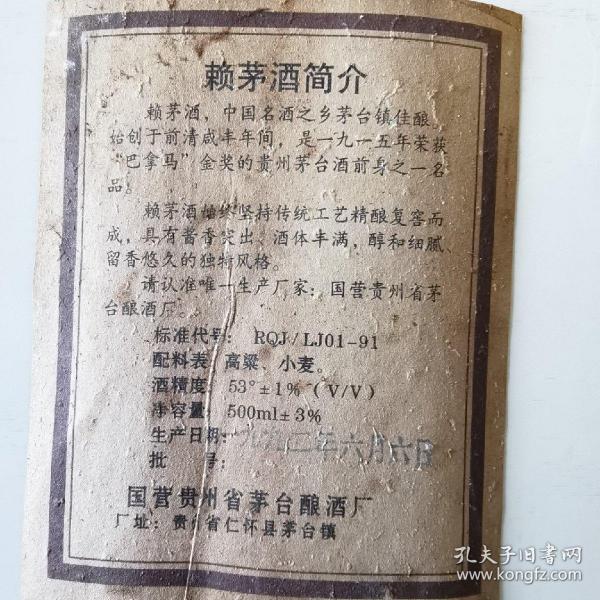 赖茅酒简介
赖茅酒，中国名酒之乡茅台镇佳酿，
始创于前清咸丰年间，是一九一五年荣获
“巴拿马”金奖的贵州茅台酒前身之一名
品。
赖茅酒始终坚持传统工艺精酿复窖而
成，具有酱香突出、酒体丰满，醇和细腻、
留香悠久的独特风格。
请认准唯一生产厂家：国营贵州省茅
台酿酒厂。
标准代号：RQJ/LJ01-91
配料表：高粱、小麦。
酒精度：53°±1%（V/V）
净容量：500ml±3%
生产日期：一九九二年六月六日
批 号：
国营贵州省茅台酿酒厂
厂址：贵州省仁怀县茅台镇
孔夫子旧书网
www.kongfz.com